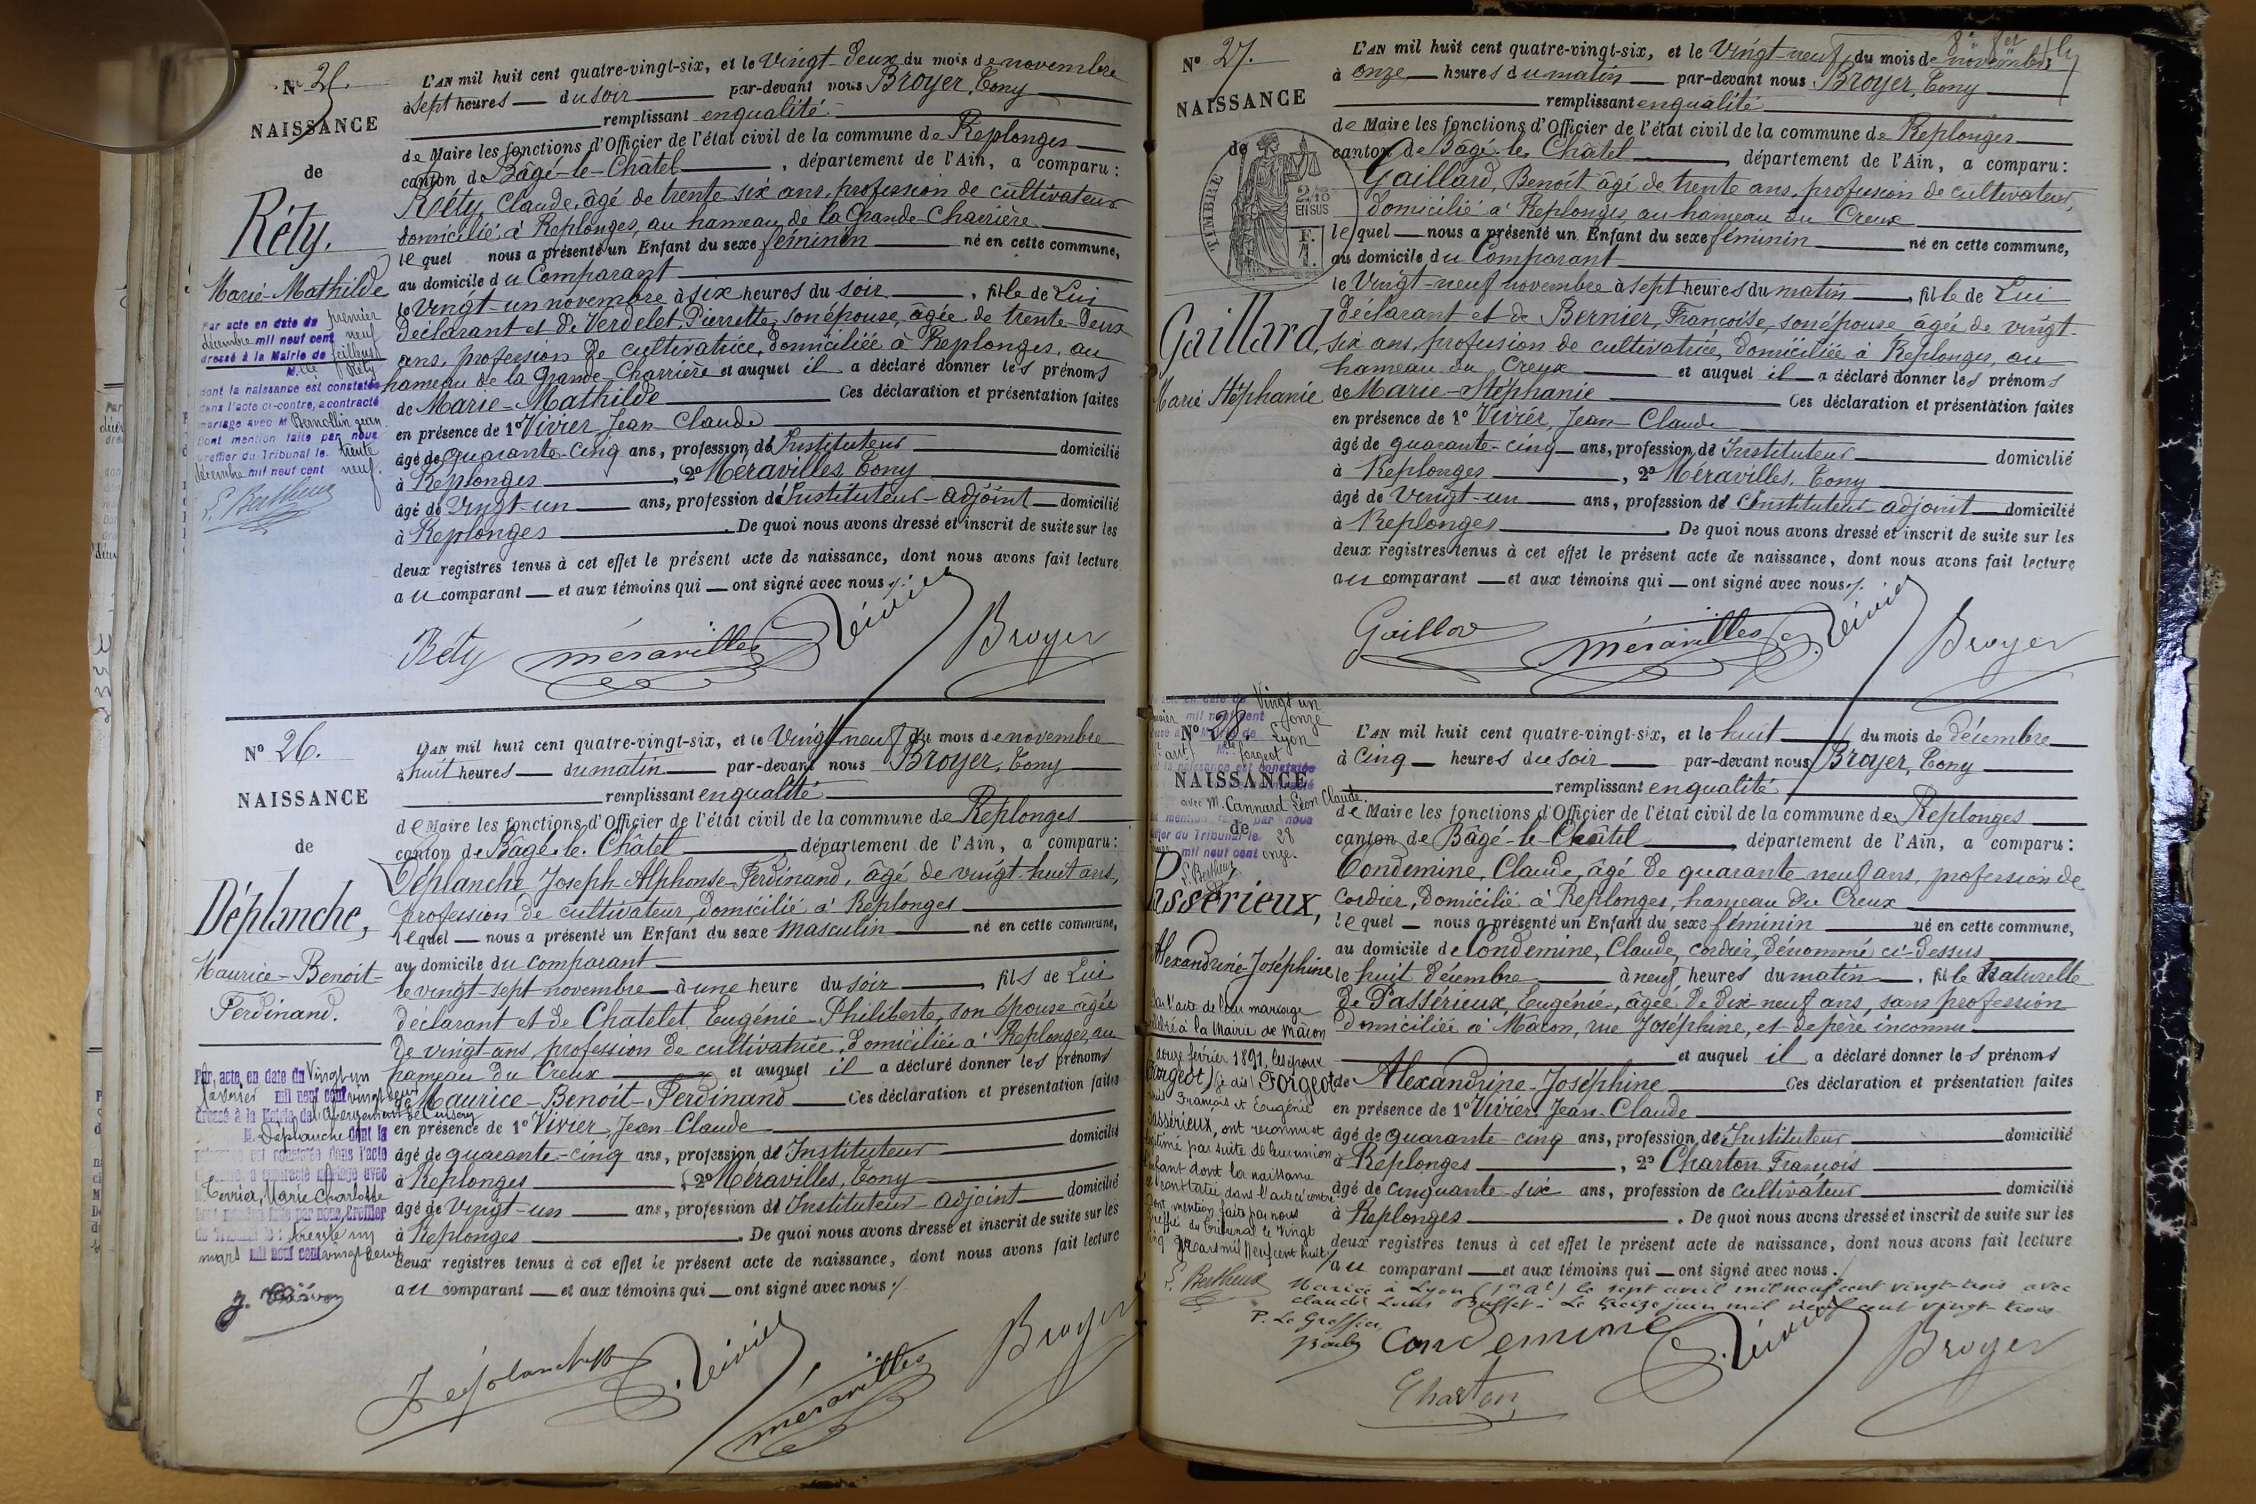 N° 25.
NAISSANCE
de
Réty.
Marie-Mathilde
Par acte en date du premier
décembre mil neuf cent neuf
dressé à la Mairie de Feillens
M.lle Réty
dont la naissance est constatée
dans l'acte ci-contre, a contracté
mariage avec M Bernollin Jean
Dont mention faite par nous
Greffier du Tribunal le trente
décembre mil neuf cent neuf.
L. Bertheux
L'AN mil huit cent quatre-vingt-six, et le Vingt-deux du mois de novembre
à sept heures du soir par-devant nous Broyer, Tony
remplissant en qualité
de Maire les fonctions d'Officier de l'état civil de la commune de Replonges
canton de Bâgé-le-Châtel, département de l'Ain, a comparu:
Réty, Claude, âgé de trente six ans, profession de cultivateur
domicilié à Replonges, au hameau de la Grande-Charrière
lequel nous a présenté un Enfant du sexe féminin né en cette commune,
au domicile du Comparant
le Vingt-un novembre à six heures du soir, fille de Lui
déclarant et de Verdelet, Pierrette, son épouse, âgée de trente-deux
ans, profession de cultivatrice, domiciliée à Replonges, au
hameau de la Grande-Charrière et auquel il a déclaré donner les prénoms
de Marie-Mathilde Ces déclaration et présentation faites
en présence de 1° Vivier, Jean Claude
âgé de quarante-cinq ans, profession d'Instituteur domicilié
à Replonges, 2° Méravilles, Tony
âgé de vingt-un ans, profession d'Instituteur-adjoint domicilié
à Replonges. De quoi nous avons dressé et inscrit de suite sur les
deux registres tenus à cet effet le présent acte de naissance, dont nous avons fait lecture
au comparant et aux témoins qui ont signé avec nous ./.
Réty méravilles C. Vivier Broyer
N° 26.
NAISSANCE
de
Déplanche,
Maurice-Benoit-
Ferdinand.
Par acte en date du Vingt un
janvier mil neuf cent vingt deux
dressé à la Mairie de l'Abergement de Cuisery
M. Déplanche dont la
naissance est constatée dans l'acte
ci-contre, a contracté mariage avec
Terrier, Marie Charlotte
Dont mention faite par nous, Greffier
du Tribunal le trente un
mars mil neuf cent vingt deux
L'AN mil huit cent quatre-vingt-six, et le Vingt neuf du mois de novembre
à huit heures du matin par-devant nous Broyer, Tony
remplissant en qualité
de Maire les fonctions d'Officier de l'état civil de la commune de Replonges
canton de Bâgé-le-Châtel département de l'Ain, a comparu:
Déplanche Joseph-Alphonse-Ferdinand, âgé de vingt-huit ans,
profession de cultivateur, domicilié à Replonges
lequel nous a présenté un Enfant du sexe masculin né en cette commune,
au domicile du comparant
le vingt-sept novembre à une heure du soir, fils de Lui
déclarant et de Chatelet, Eugénie-Philiberte, son épouse âgée
de vingt ans, profession de cultivatrice, domiciliée à Replonges, au
hameau du Creux et auquel il a déclaré donner les prénoms
de Maurice-Benoit-Ferdinand Ces déclaration et présentation faites
en présence de 1° Vivier, Jean-Claude
âgé de quarante-cinq ans, profession d'Instituteur domicilié
à Replonges, 2° Méravilles, Tony
âgé de vingt-un ans, profession d'Instituteur-adjoint domicilié
à Replonges. De quoi nous avons dressé et inscrit de suite sur les
deux registres tenus à cet effet le présent acte de naissance, dont nous avons fait lecture
au comparant et aux témoins qui ont signé avec nous ./.
Déplanche C. Vivier méravilles Broyer
N° 27.
NAISSANCE
de
TIMBRE
2/10
EN SUS
F.
Gaillard,
Marie Stéphanie
L'AN mil huit cent quatre-vingt-six, et le Vingt neuf du mois de novembre
à onze heures du matin par-devant nous Broyer, Tony
remplissant en qualité
de Maire les fonctions d'Officier de l'état civil de la commune de Replonges
canton de Bâgé-le-Châtel, département de l'Ain, a comparu:
Gaillard, Benoit âgé de trente ans, profession de cultivateur,
domicilié à Replonges au hameau du Creux
lequel nous a présenté un Enfant du sexe féminin né en cette commune,
au domicile du Comparant
le Vingt-neuf novembre à sept heures du matin, fille de Lui
déclarant et de Bernier, Françoise, son épouse âgée de vingt-
six ans, profession de cultivatrice, domiciliée à Replonges, au
hameau du Creux et auquel il a déclaré donner les prénoms
de Marie-Stéphanie Ces déclaration et présentation faites
en présence de 1° Vivier, Jean-Claude
âgé de quarante-cinq ans, profession d'Instituteur domicilié
à Replonges, 2° Méravilles, Tony
âgé de vingt-un ans, profession d'Instituteur adjoint domicilié
à Replonges. De quoi nous avons dressé et inscrit de suite sur les
deux registres tenus à cet effet le présent acte de naissance, dont nous avons fait lecture
au comparant et aux témoins qui ont signé avec nous ./.
Gaillar méravilles C. Vivier Broyer
en date du Vingt un
mil neuf cent onze
Lyon
Forgeot
la naissance est constatée
avec M. Cannard Léon Claude.
mention faite par nous
Greffier du Tribunal le 28
mil neuf cent onze.
L. Bertheux
N° 28.
NAISSANCE
de
Passérieux,
Alexandrine-Joséphine
Par l'acte de leur mariage
célébré à la Mairie de Mâcon
douze février 1891, les époux
Forgeot (je dis) Forgeot
François et Eugénie
Passérieux, ont reconnu et
légitimé par suite de leur union
l'enfant dont la naissance
est constatée dans l'acte ci-contre
Dont mention faite par nous
Greffier du Tribunal le Vingt
cinq Mars mil neuf cent huit
L. Bertheux
L'AN mil huit cent quatre-vingt-six, et le huit du mois de décembre
à cinq heures du soir par-devant nous Broyer, Tony
remplissant en qualité
de Maire les fonctions d'Officier de l'état civil de la commune de Replonges
canton de Bâgé-le-Châtel, département de l'Ain, a comparu:
Condemine, Claude, âgé de quarante neuf ans, profession de
cordier, domicilié à Replonges, hameau du Creux
lequel nous a présenté un Enfant du sexe féminin né en cette commune,
au domicile de Condemine, Claude, cordier, dénommé ci-dessus
le huit décembre à neuf heures du matin, fille Naturelle
de Passérieux, Eugénie, âgée de dix-neuf ans, sans profession
domiciliée à Mâcon, rue Joséphine, et de père inconnu
et auquel il a déclaré donner les prénoms
de Alexandrine-Joséphine Ces déclaration et présentation faites
en présence de 1° Vivier, Jean-Claude
âgé de quarante-cinq ans, profession d'Instituteur domicilié
à Replonges, 2° Charton François
âgé de cinquante-six ans, profession de cultivateur domicilié
à Replonges. De quoi nous avons dressé et inscrit de suite sur les
deux registres tenus à cet effet le présent acte de naissance, dont nous avons fait lecture
au comparant et aux témoins qui ont signé avec nous ./.
Mariée à Lyon le sept avril mil neuf cent vingt-trois avec
Claude Louis Buffet. Le treize juin mil neuf cent vingt-trois
P. Le Greffier
Condemine C. Vivier Broyer
Charton